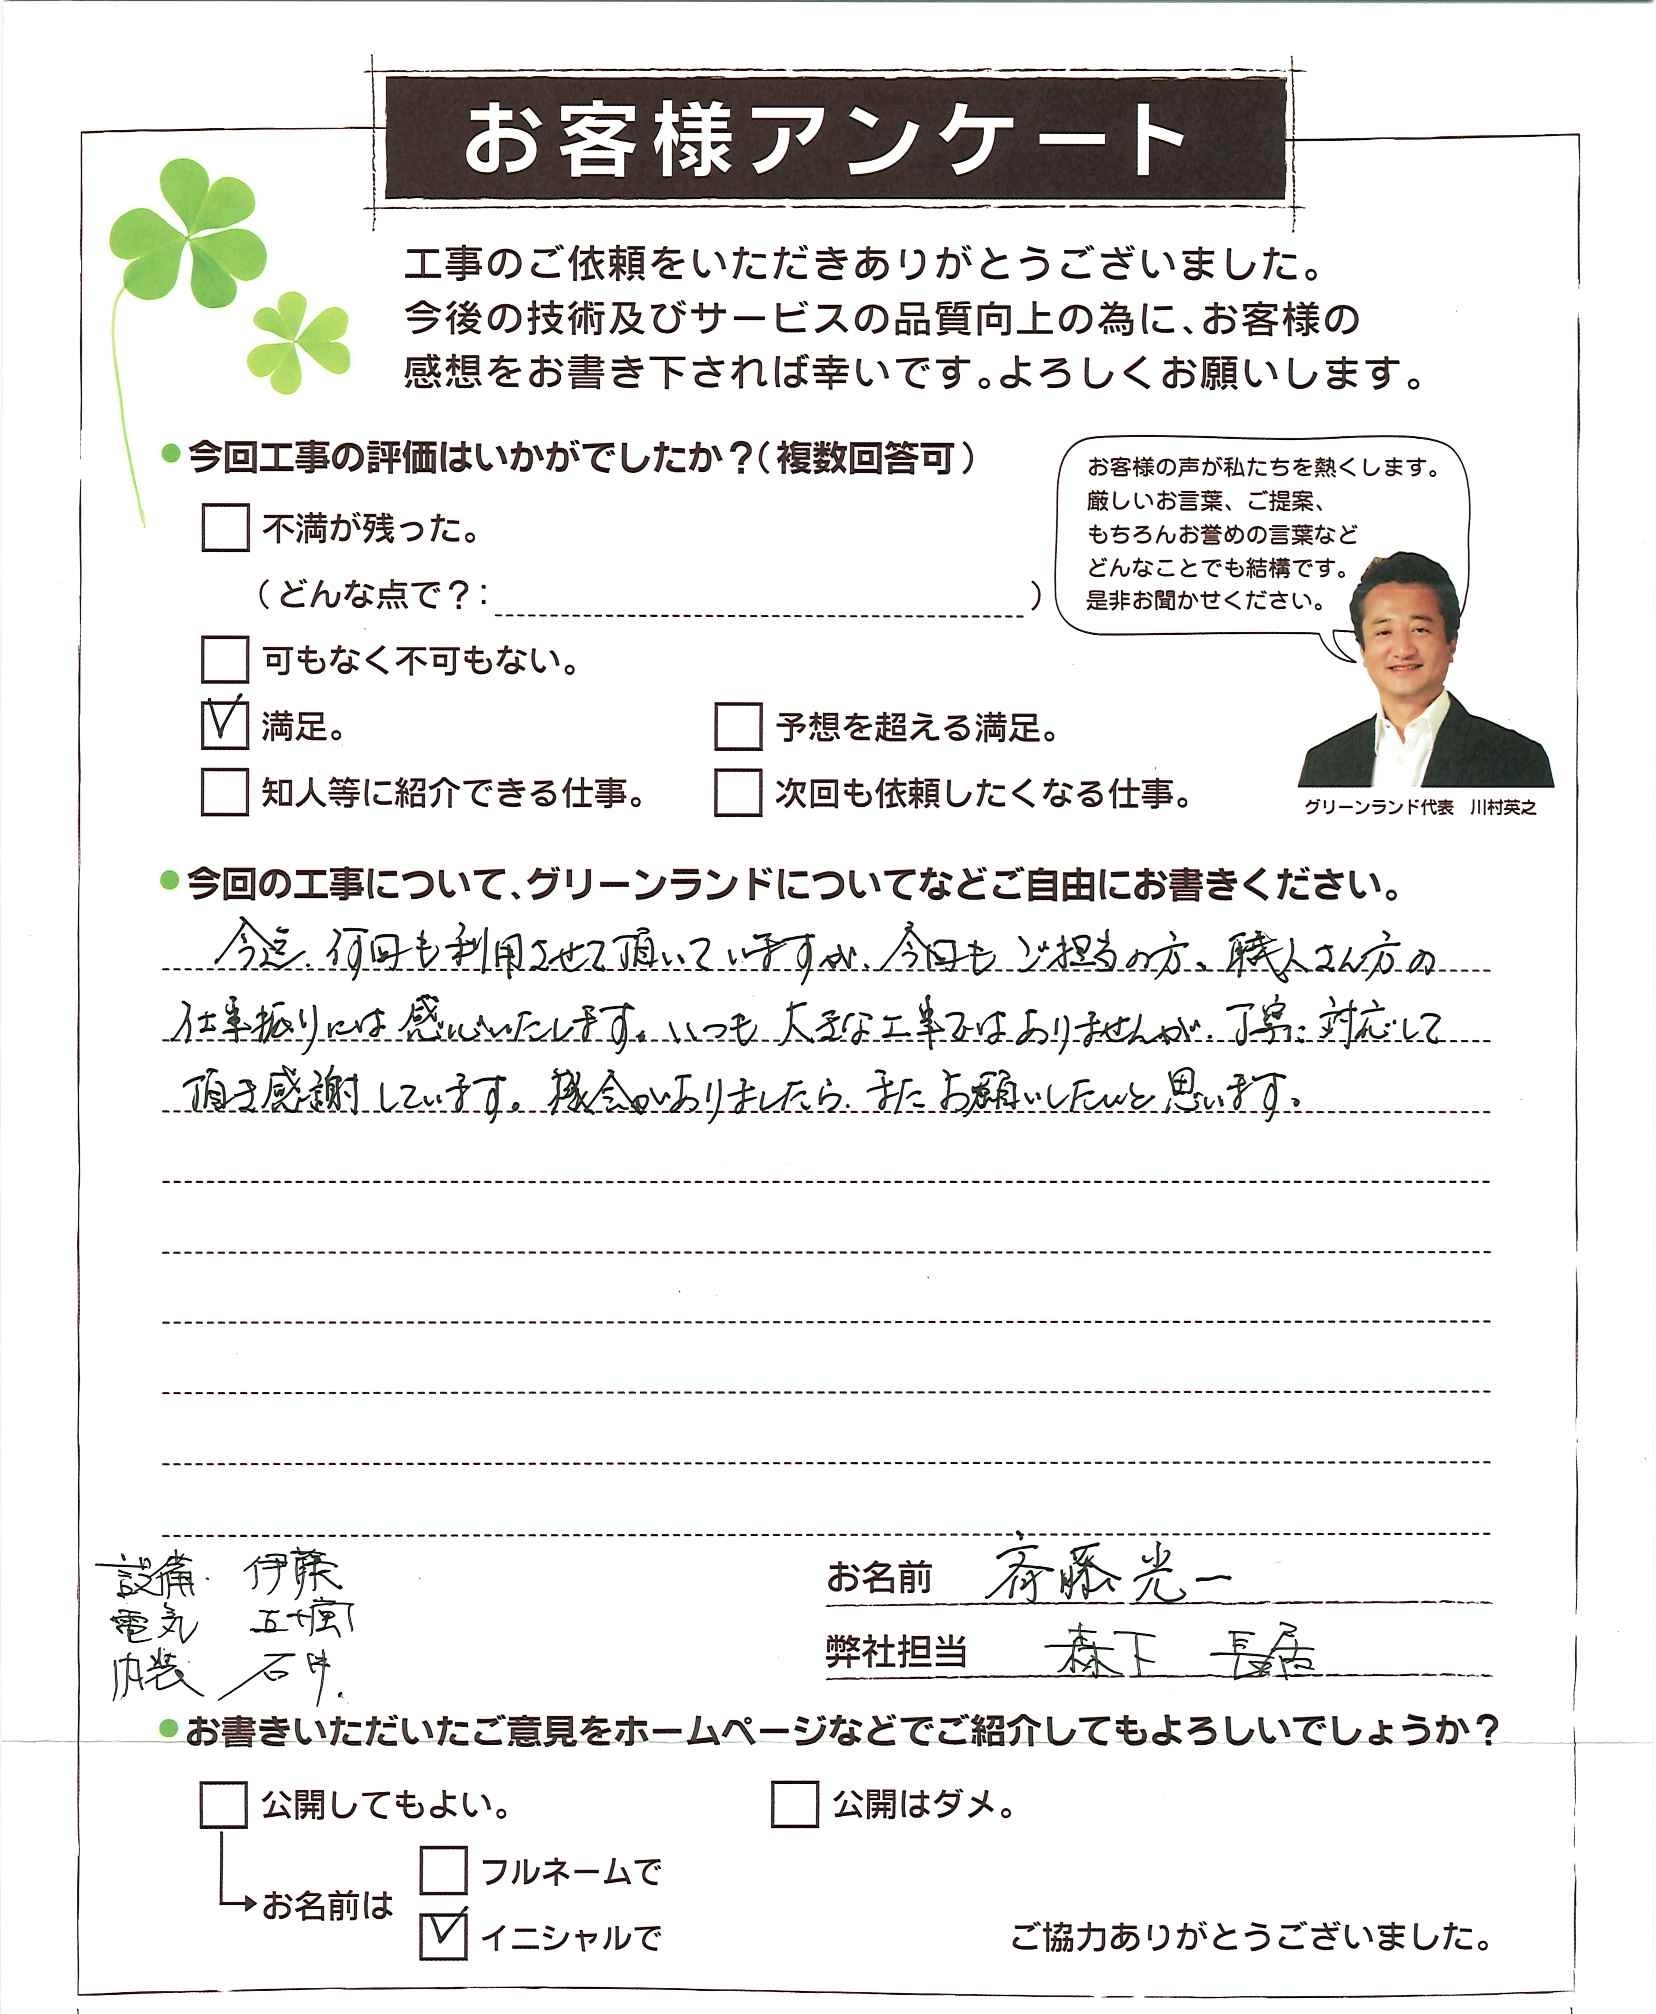 お客様アンケート
工事のご依頼をいただきありがとうございました。
今後の技術及びサービスの品質向上の為に、お客様の
感想をお書き下されば幸いです。よろしくお願いします。
●今回工事の評価はいかがでしたか？（複数回答可）
お客様の声が私たちを熱くします。
厳しいお言葉、ご提案、
もちろんお誉めの言葉など
どんなことでも結構です。
是非お聞かせください。
不満が残った。
（どんな点で？：　）
可もなく不可もない。
満足。
予想を超える満足。
知人等に紹介できる仕事。
次回も依頼したくなる仕事。
グリーンランド代表　川村英之
●今回の工事について、グリーンランドについてなどご自由にお書きください。
今迄、何回も利用させて頂いていますが、今回もご担当の方、職人さん方の
仕事振りには感心いたします。いつも大きな工事ではありませんが、丁寧に対応して
頂き感謝しています。機会がありましたら、またお願いしたいと思います。
設備　伊藤
電気　五十嵐
内装　石井
お名前　斉藤光一
弊社担当　森下　長居
●お書きいただいたご意見をホームページなどでご紹介してもよろしいでしょうか？
公開してもよい。
公開はダメ。
フルネームで
お名前は
イニシャルで
ご協力ありがとうございました。